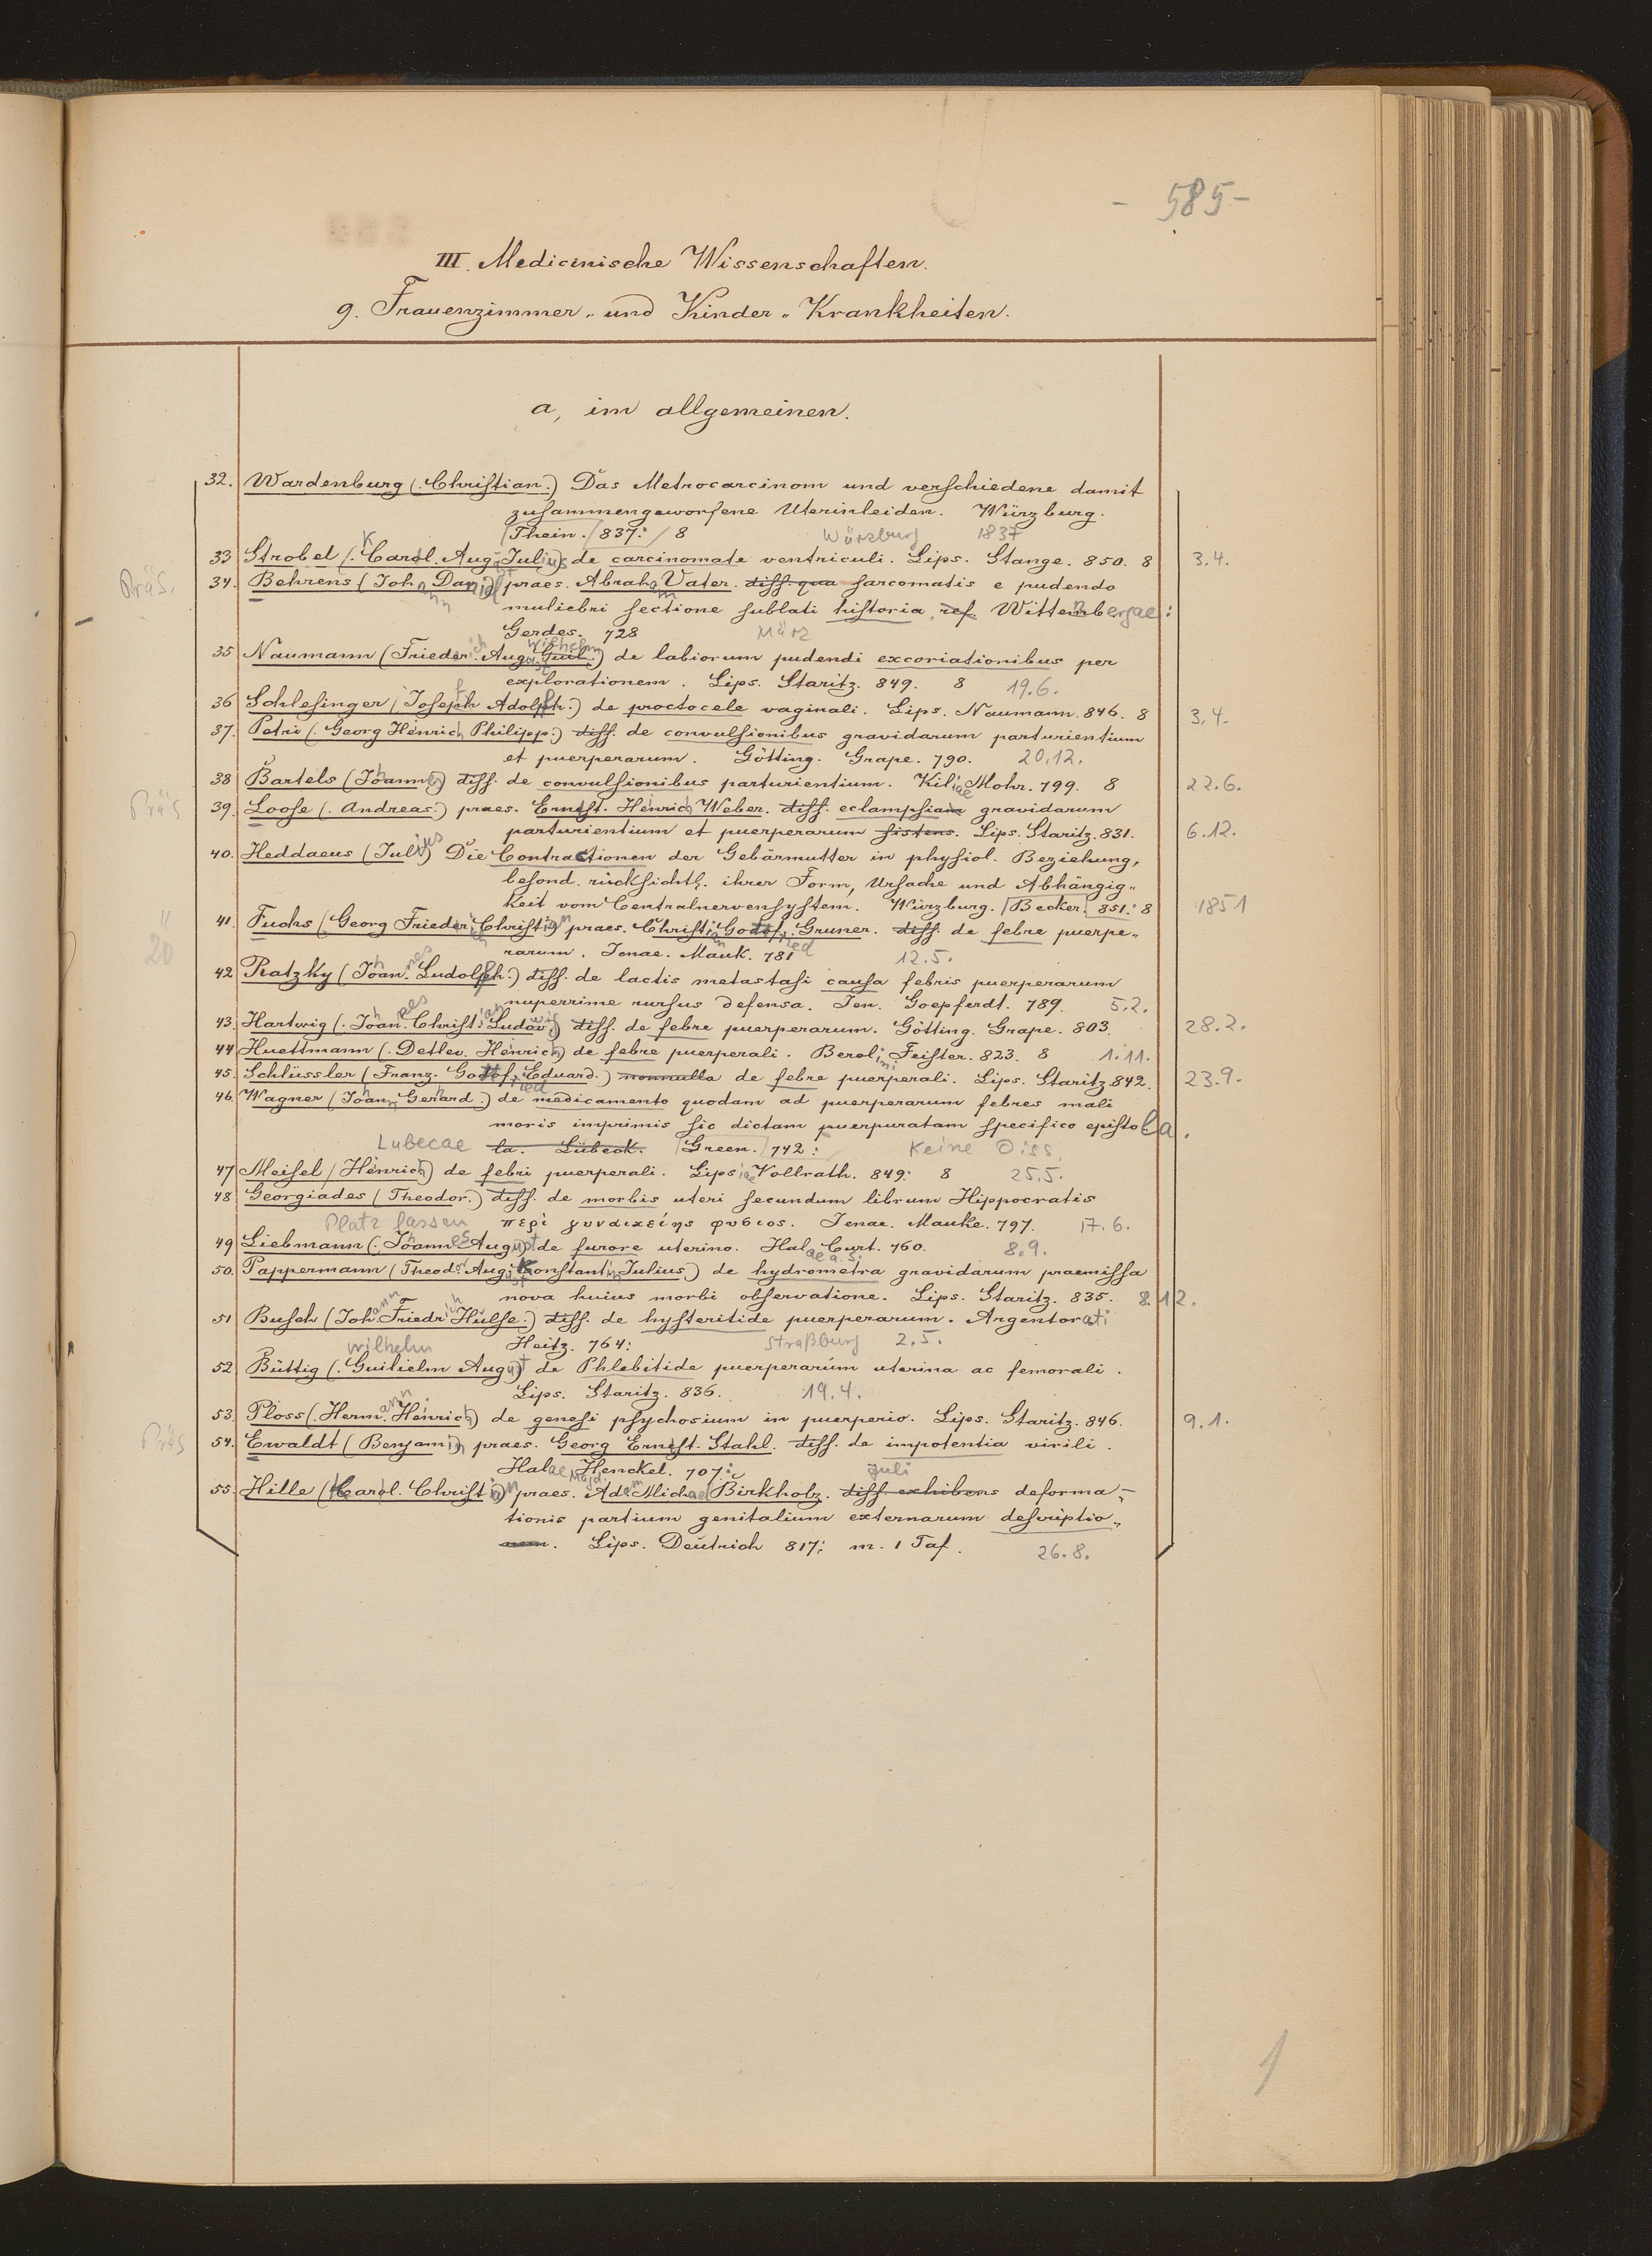 - 585 -
III. Medicinische Wissenschaften.
9. Frauenzimmer- und Kinder-Krankheiten.
a, im allgemeinen.
32. Wardenburg (Christian.) Das Metrocarcinom und verschiedene damit
zusammengeworfene Uterinleiden. Würzburg.
Thein. 837. 8 Würzburg 1837
33 Strobel (Karl. August Julius) de carcinomate ventriculi. Lips. Stange. 850. 8 3.4.
Präs. 34. Behrens (Johann Daniel) praes. Abraham Vater. diss. qua sarcomatis e pudendo
muliebri sectione sublati historia ref. Wittenbergae:
Gerdes. 728 März
35 Naumann (Friederich August Guil. Wilhelm) de labiorum pudendi excoriationibus per
explorationem. Lips. Staritz. 849. 8 19.6.
36 Schlesinger (Joseph Adolph.) de proctocele vaginali. Lips. Naumann. 846. 8 3.4.
37. Petri (Georg Heinrich Philipp.) diss. de convulsionibus gravidarum parturientium
et puerperarum. Götting. Grape. 790. 20.12.
38 Bartels (Johannes) diss. de convulsionibus parturientium. Kiliae Mohr. 799. 8 22.6.
Präs 39. Loose (Andreas.) praes. Ernst. Heinrich Weber. diss. eclampsiam gravidarum
parturientium et puerperarum sistens. Lips. Staritz. 831. 6.12.
40. Heddaeus (Julius) Die Contractionen der Gebärmutter in physiol. Beziehung,
besond. rücksichtl. ihrer Form, Ursache und Abhängig-
keit vom Centralnervensystem. Würzburg. Becker. 851. 8 1851
20 41. Fuchs (Georg Friederich Christian praes. Christian Gottfried Gruner. diss. de febre puerpe-
rarum. Jenae. Mauk. 781 12.5.
42 Ratzky (Johannes Ludolph.) diss. de lactis metastasi causa febris puerperarum
nuperrime rursus defensa. Jen. Goepferdt. 789. 5.2.
43. Hartwig (Johannes Christian Ludowig) diss. de febre puerperarum. Götting. Grape. 803. 28.2.
44 Huettmann (Detlev. Heinrich) de febre puerperali. Berolini Feister. 823. 8 1.11.
45. Schlüssler (Franz. Gottfried Eduard.) nonnulla de febre puerperali. Lips. Staritz 842. 23.9.
46. Wagner (Johann Gerhard.) de medicamento quodam ad puerperarum febres mali
moris imprimis sic dictam puerpuratam specifico epistola.
Lubecae la. Lübeck. Green. 742: Keine Diss.
47 Meisel (Heinrich) de febri puerperali. Lipsiae Vollrath. 849. 8 25.5.
48. Georgiades (Theodor.) diss. de morbis uteri secundum librum Hippocratis
Platz lassen περὶ γυναικείης φυσιος. Jenae. Mauke. 797. 17.6.
49 Liebmann (Johannes August de furore uterino. Halae a. S. Curt. 760. 8.9.
50. Pappermann (Theodor August Konstantin Julius) de hydrometra gravidarum praemissa
nova huius morbi observatione. Lips. Staritz. 835. 8.12.
51 Busch (Johann Friedrich Hülse.) diss. de hysteritide puerperarum. Argentorati
Heitz. 764: Straßburg 2.5.
wilhelm
52 Büttig (Guilielm August de Phlebitide puerperarum uterina ac femorali.
Lips. Staritz. 836. 19.4.
53. Ploss (Hermann Heinrich) de genesi psychosium in puerperio. Lips. Staritz. 846. 9.1.
Präs 54. Ewaldt (Benjamin praes. Georg Ernst. Stahl. diss. de impotentia virili.
Halae Magd. Henckel. 707: Juli
55. Hille (Carl. Christian praes. Adam Michael Birkholz. diss. exhibens deforma-
tionis partium genitalium externarum descriptio-
nem. Lips. Deutrich 817; m. 1 Taf. 26.8.
1